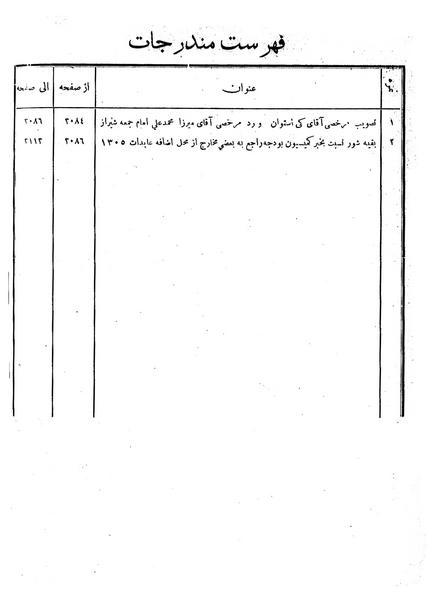 فهرست مندرجات
نمره عنوان از صفحه الی صفحه
۱ تصویب مرخصی آقای کی استوان و رد مرخصی آقای میرزا محمدعلی امام جمعه شیراز ۲۰۸۴ ۲۰۸۶
۲ بقیه شور نسبت بخبر کمیسیون بودجه راجع به بعضی مخارج از محل اضافه عایدات ۱۳۰۵ ۲۰۸۶ ۲۱۱۳